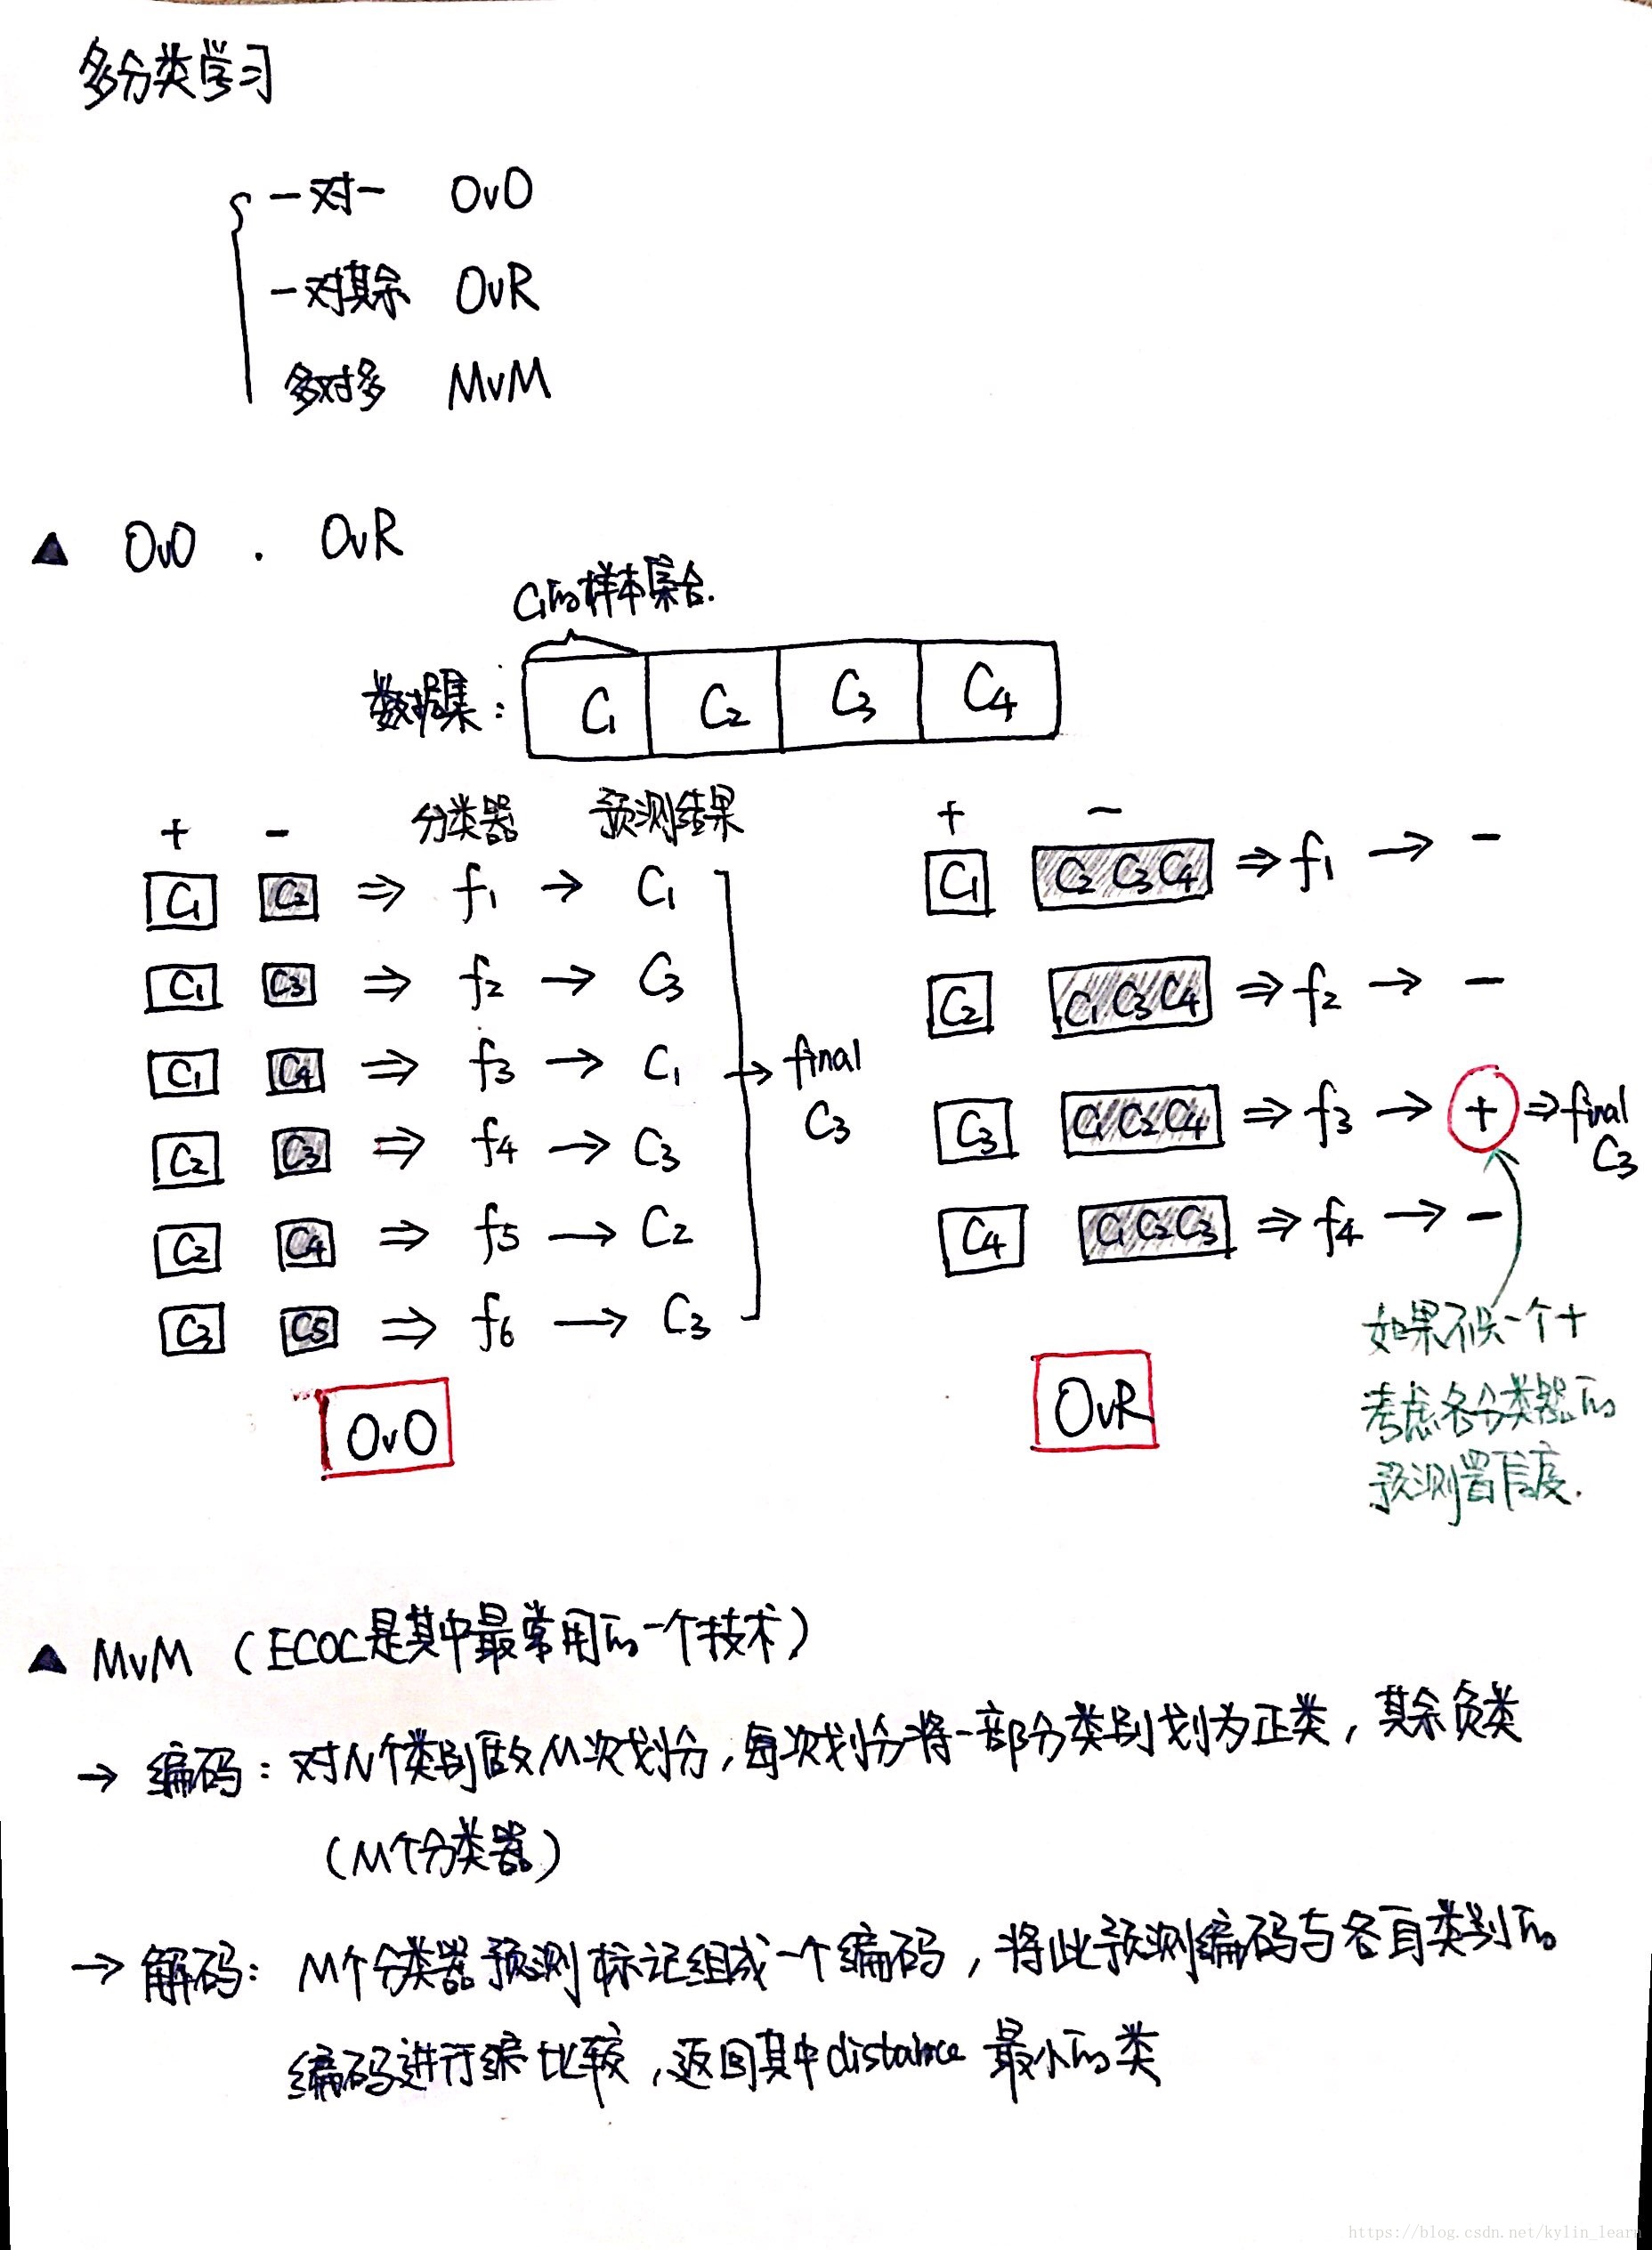 多分类学习
一对一 OvO
一对其余 OvR
多对多 MvM
▲ OvO . OvR
C1的样本集合.
数据集: C1 C2 C3 C4
+ - 分类器 预测结果
C1 C2 ⇒ f1 → C1
C1 C3 ⇒ f2 → C3
C1 C4 ⇒ f3 → C1
C2 C3 ⇒ f4 → C3
C2 C4 ⇒ f5 → C2
C3 C5 ⇒ f6 → C3
→ final
C3
OvO
+ -
C1 C2 C3 C4 ⇒ f1 → -
C2 C1 C3 C4 ⇒ f2 → -
C3 C1 C2 C4 ⇒ f3 → + ⇒ final
C3
C4 C1 C2 C3 ⇒ f4 → -
OvR
如果不仅一个+
考虑各分类器的
预测置信度.
▲ MvM (ECOC是其中最常用的一个技术)
→ 编码: 对N个类别做M次划分,每次划分将一部分类别划为正类,其余负类
(M个分类器)
→ 解码: M个分类器预测标记组成一个编码,将此预测编码与各自类别的
编码进行 比较,返回其中distance 最小的类
https://blog.csdn.net/kylin_learn